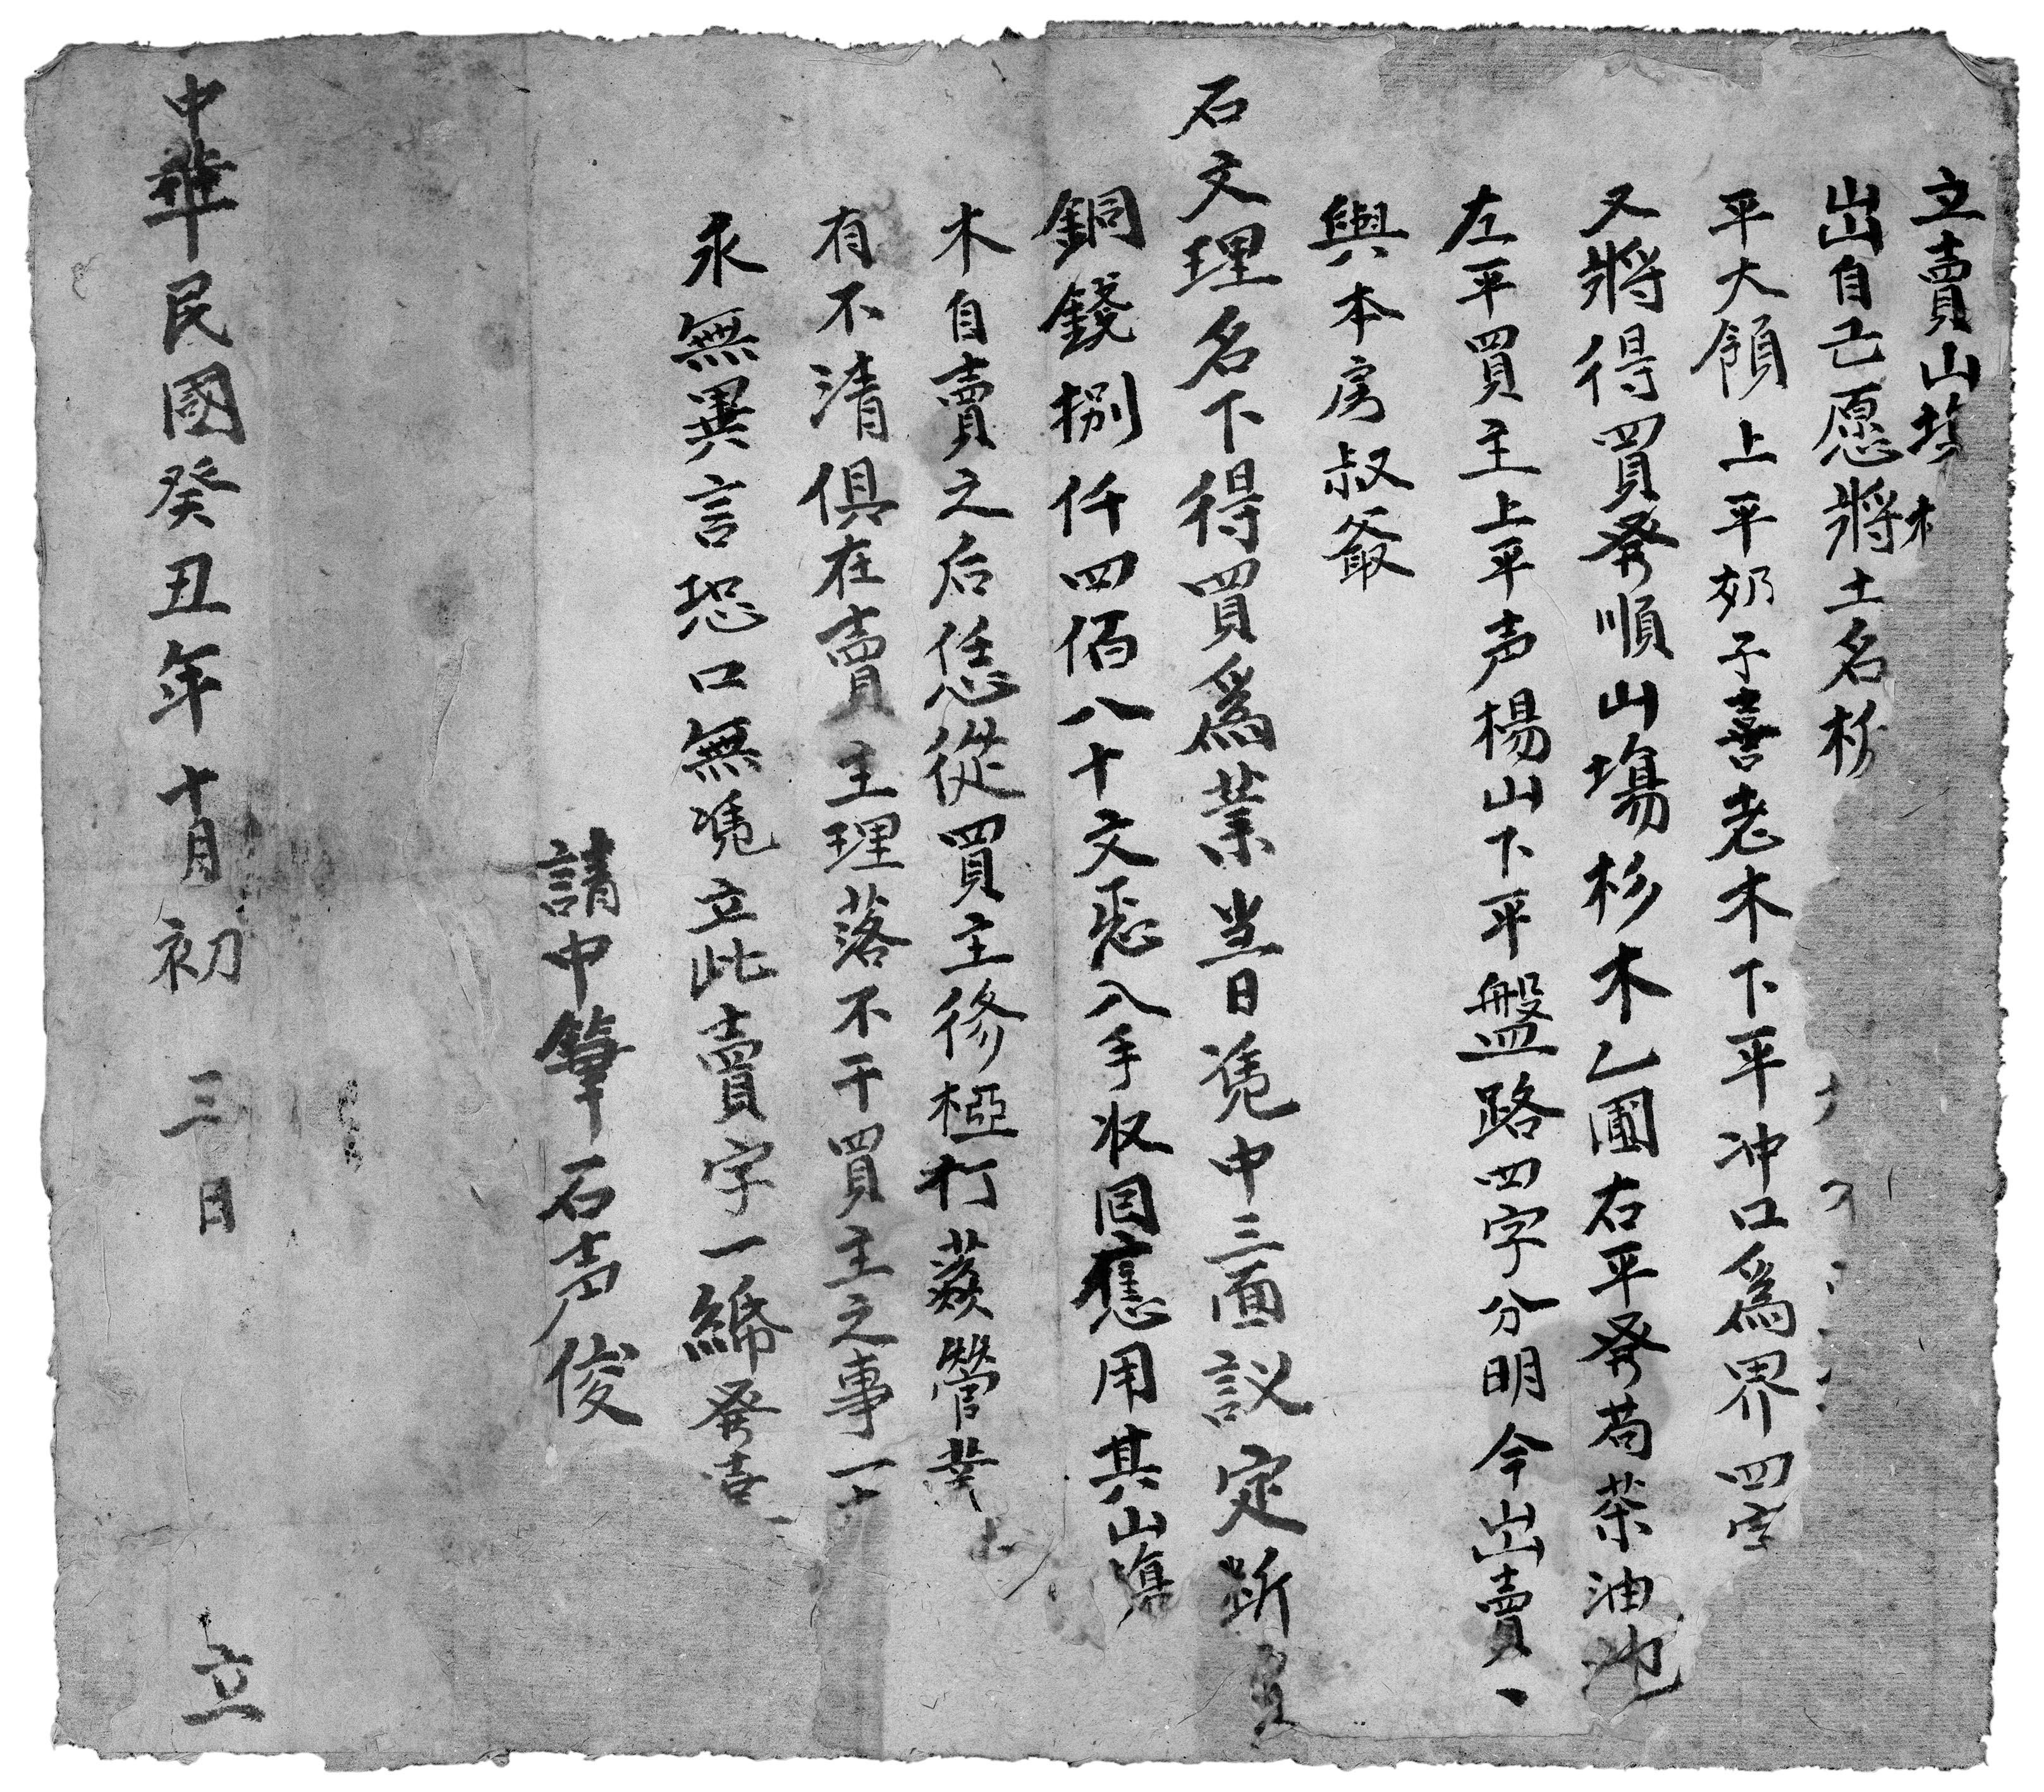 立賣山塲木
出自己愿將土名杉
平大領上平奶子喜老木下平冲口爲界四字
又將得買發順山塲杉木乙圃右平發苟茶油地
左平買主上平声楊山下平盤路四字分明今出賣
與本房叔爺
石文理名下得買爲業当日凴中三面議定断
銅錢捌仟四佰八十文悉入手收囘應用其山塲
木自賣之后恁從買主修極打蔸管業
有不清俱在賣主理落不干買主之事一
永無異言恐口無凴立此賣字一紙發吉
請中筆石声俊
中華民國癸丑年十月初三日立